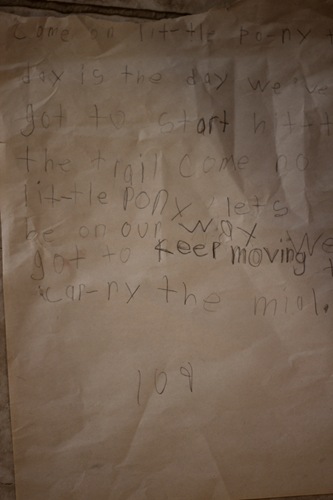 Come on lit-tle po-ny t
day is the day we've
got to start hit-t
the trail come no
lit-tle pony let's
be on our way We
got to keep moving
car-ry the mial.
109